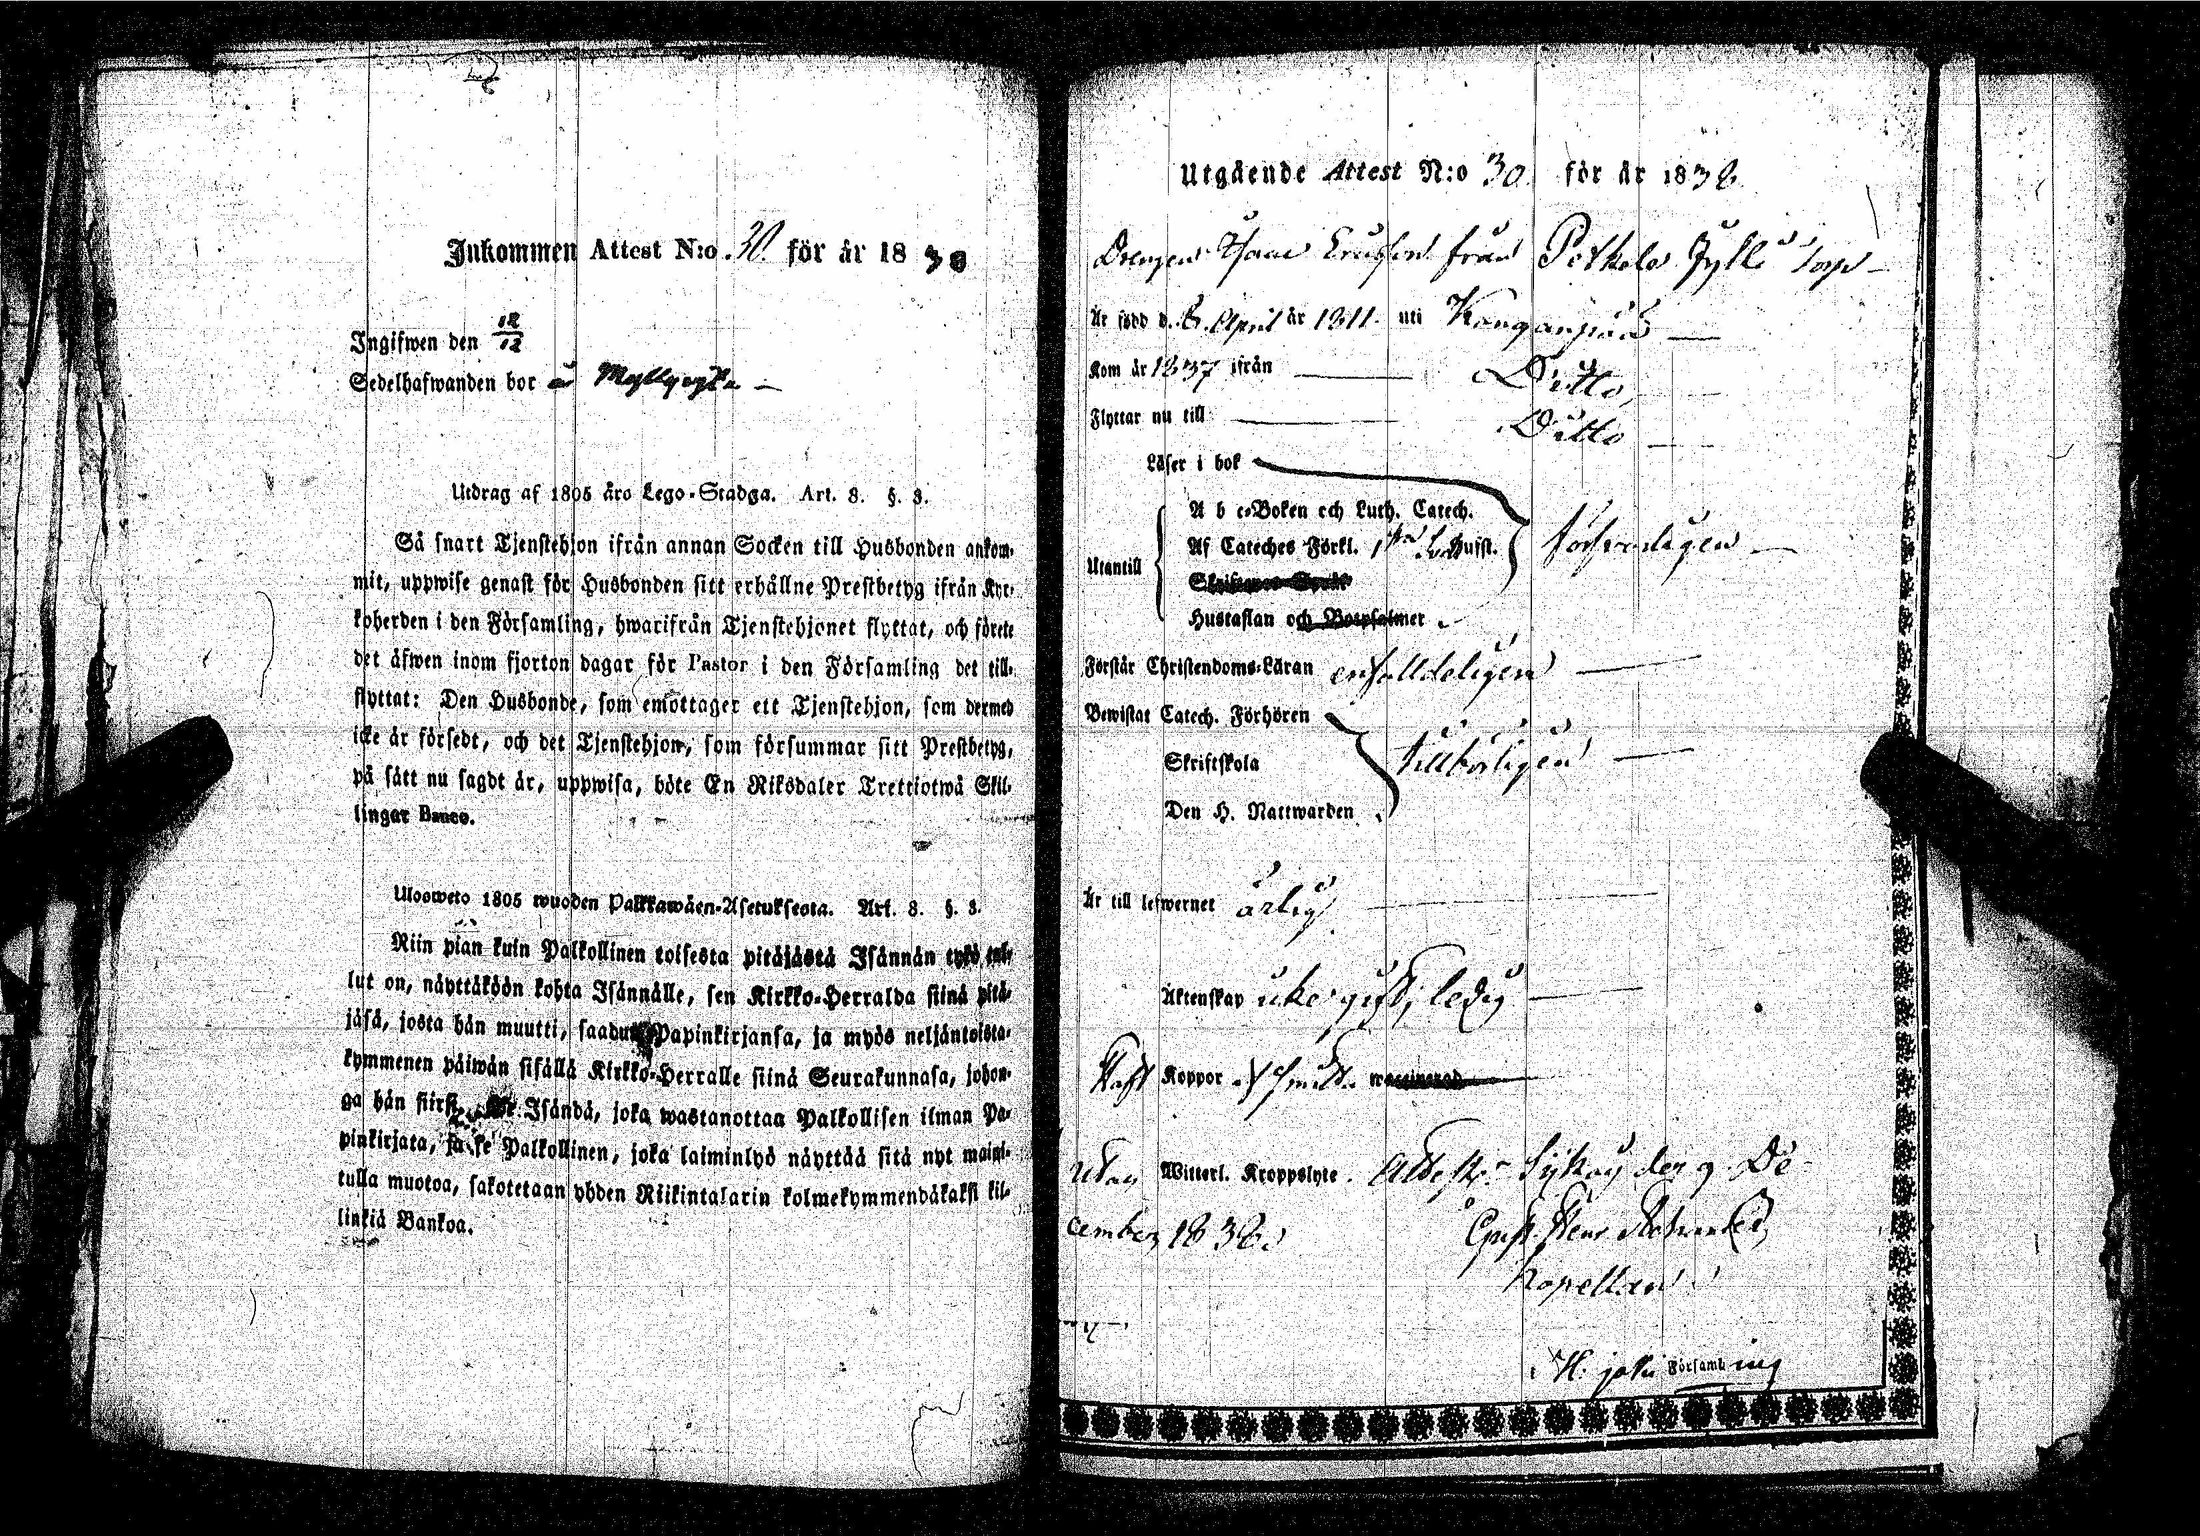 Inkommen Attest N:o 30. för år 1838
Ingifwen den 12/12
Sedelhafwanden bor å Myllykylä –
Utdrag af 1805 års Lego-Stadga. Art. 8. §. 3.
Så snart Tjenstehjon ifrån annan Socken till Husbonden ankom-
mit, uppwise genast för Husbonden sitt erhållne Prestbetyg ifrån Kyr-
koherden i den Församling, hwarifrån Tjenstehjonet flyttat, och förete
det äfwen inom fjorton dagar för Pastor i den Församling det till-
flyttat: Den Husbonde, som emottager ett Tjenstehjon, som dermed
icke är försedt, och det Tjenstehjon, som försummar sitt Prestbetyg,
på sätt nu sagdt är, uppwisa, böte En Riksdaler Trettiotwå Skil-
lingar Banco.
Ulosweto 1805 wuoden Palkkawäen-Asetuksesta. Art. 8. §. 3.
Niin pian kuin Palkollinen toisesta pitäjästä Isännän tykö tul-
lut on, näyttäköön kohta Isännälle, sen Kirkko-Herralda siinä pitä-
jäsä, josta hän muutti, saadun Papinkirjansa, ja myös neljäntoista-
kymmenen päiwän sisällä Kirkko-Herralle siinä Seurakunnasa, johon-
ga hän siirsi Isändä, joka wastanottaa Palkollisen ilman Pa-
pinkirjata, ja se Palkollinen, joka laiminlyö näyttää sitä nyt maini-
tulla muotoa, sakotetaan yhden Riikintalarin kolmekymmendäkaksi kil-
linkiä Bankoa.
Utgående Attest N:o 30. för år 1838
Drengen Isaac Ericsson från Petkele Jylli torp –
Är född d. 8. April år 1811. uti Kanganpää –
Kom år 1837 ifrån – Ditto,
Flyttar nu till – Ditto –
Läser i bok
Utantill
A b c-Boken och Luth. Catech.
Af Cateches Förkl. Hufst.
försvarligen –
Hustaflan och Botpsalmer
Förstår Christendoms-Läran enfalldeligen –
Bewistat Catech. Förhören
Skriftskola
tillbörligen –
Den H. Nattwarden
Är till lefwernet ärlig –
Äktenskap icke gift, ledig –
Haft Koppor
utan Witterl. Kroppslyte. Attest. den 9. De-
cember 1838.
Gust. Henr.
Kapellan
Församling